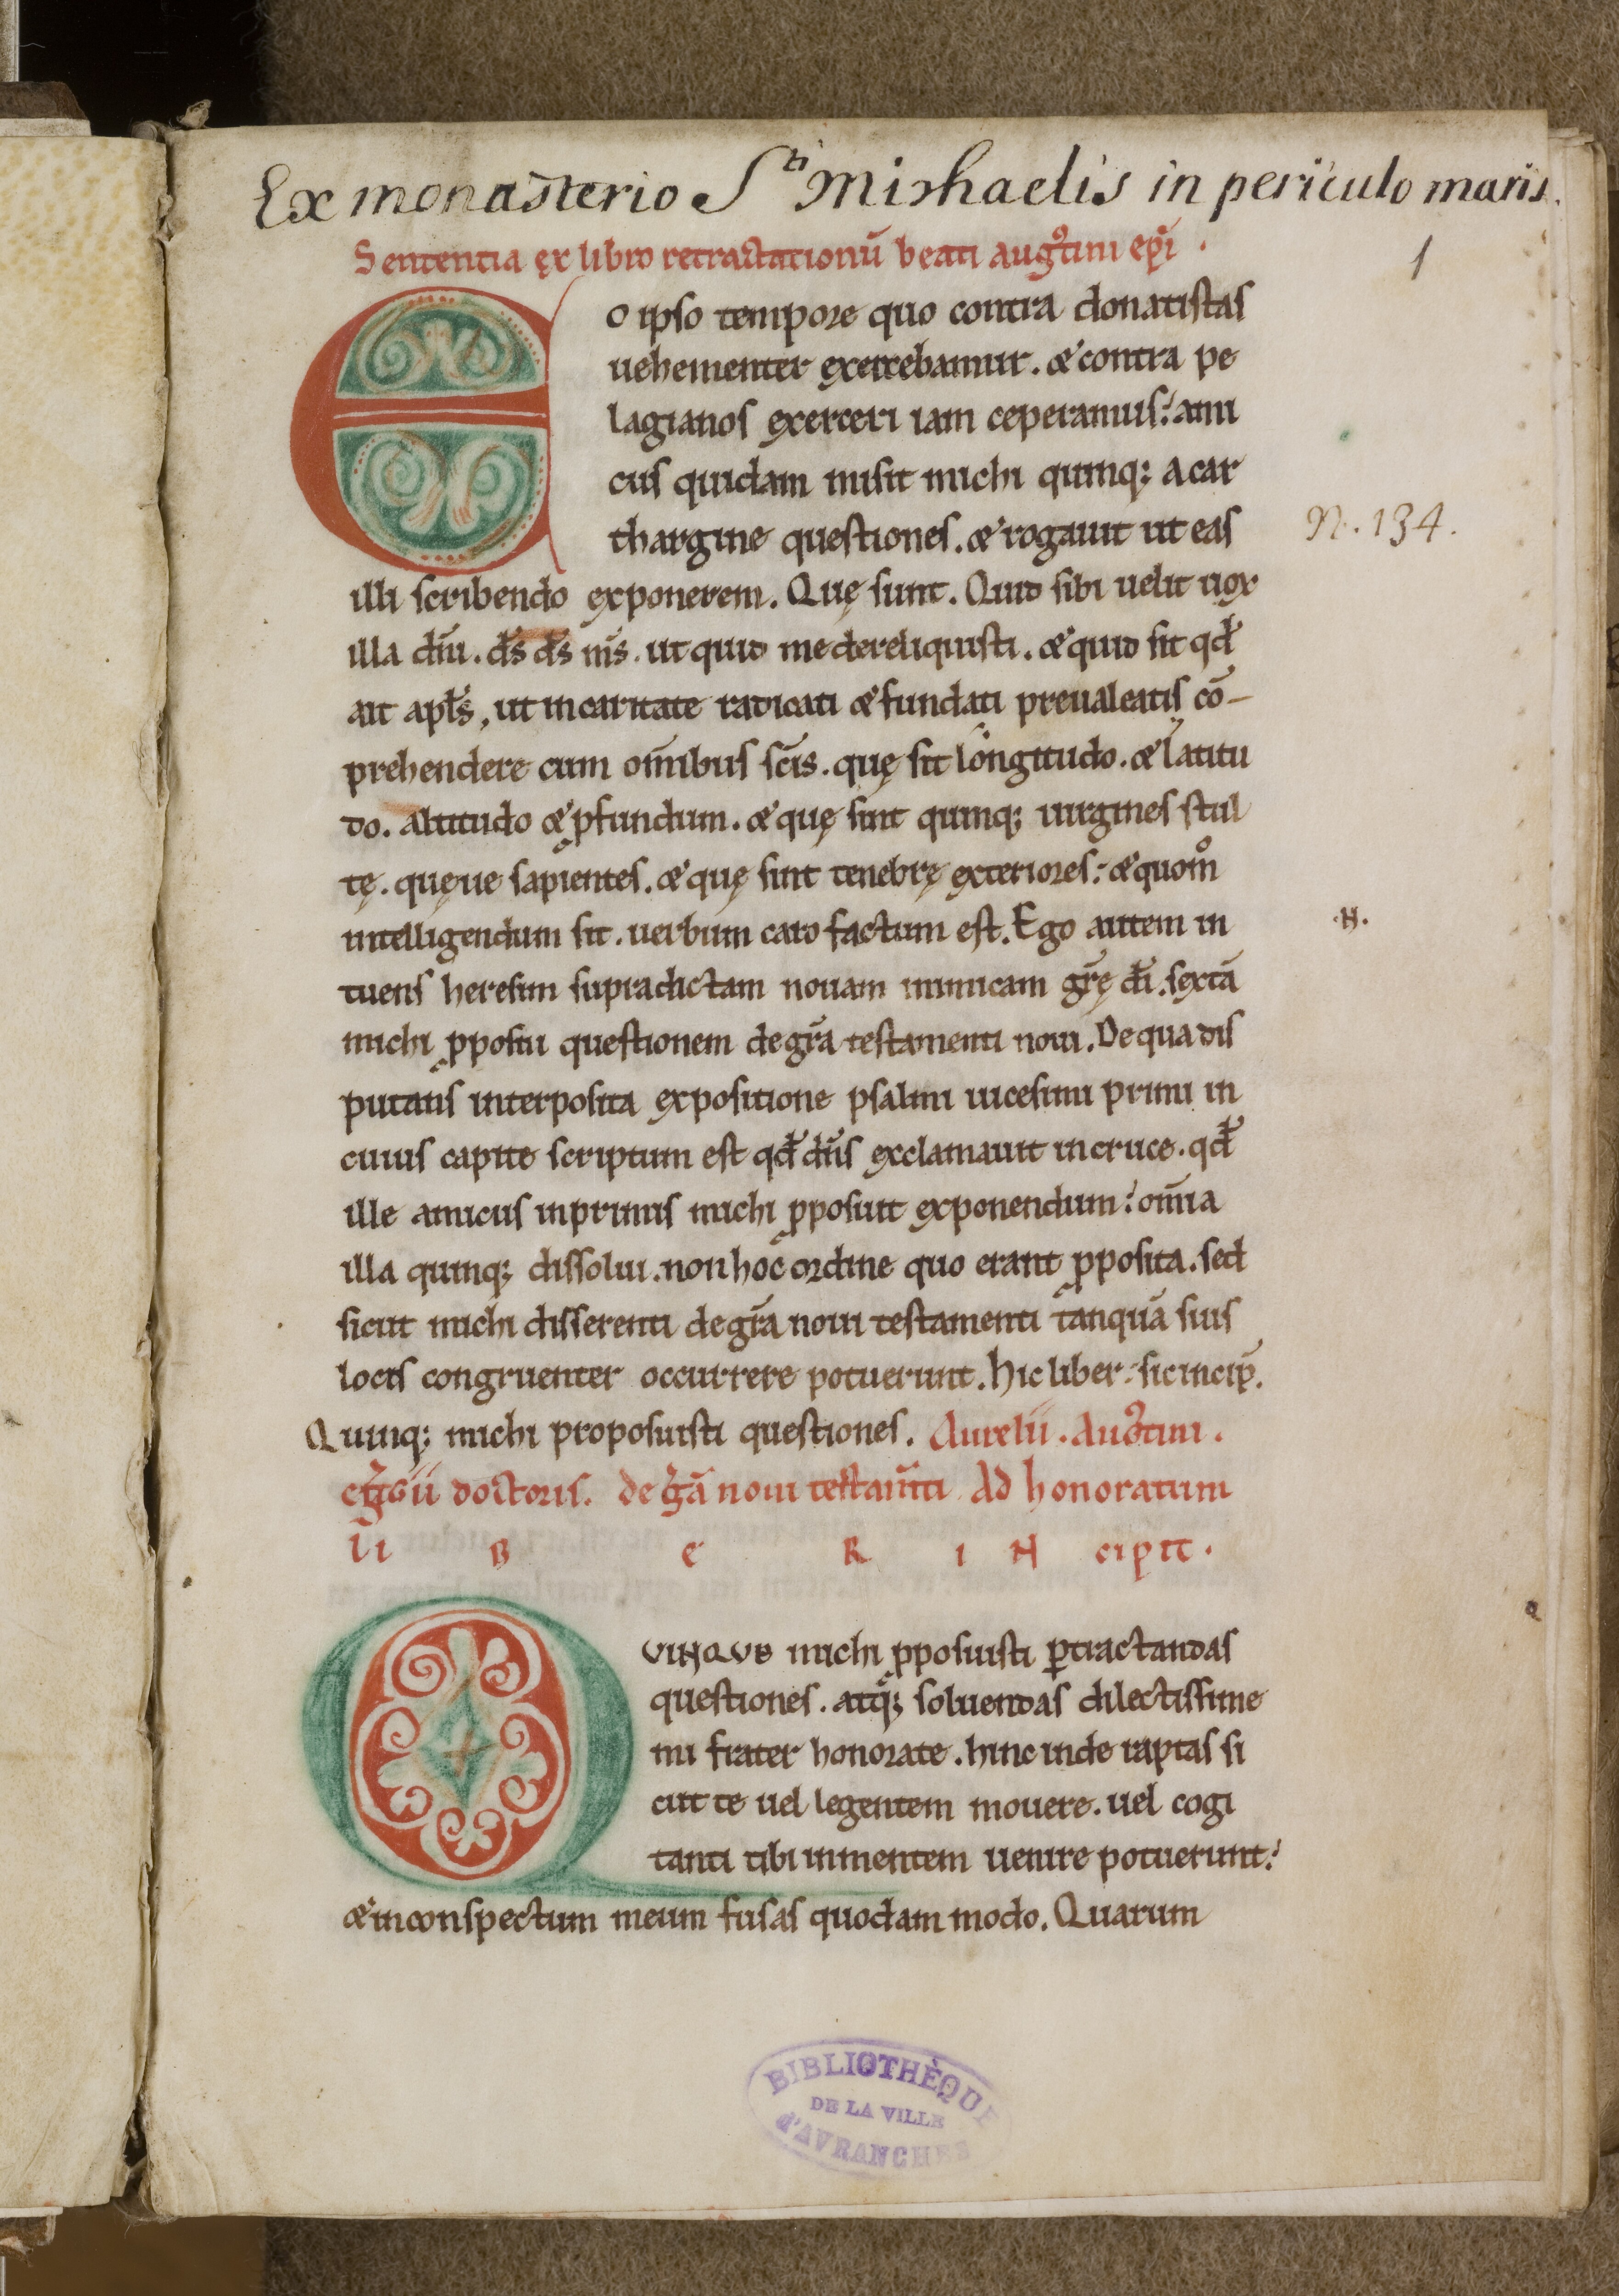 Ex monasterio Sti Michaelis in periculo maris.
1
Sententia ex libro retractationū beati augꝰtini ep̄i.
EO ipso tempore quo contra donatistas
uehementer exercebamur. & contra pe
lagianos exerceri iam ceperamus: ami
cus quidam misit michi quinq; a car
thargine questiones. & rogauit ut eas
N. 134.
illi scribendo exponerem. Quę sunt. Quid sibi uelit uox
illa dn̄i. d̄s d̄s m̄s. ut quid me dereliquisti. & quid sit qđ
ait apl̄s, ut in caritate radicati & fundati preualeatis cō-
prehendere cum om̄ibus sc̄is. quę sit longitudo. & latitu
do. altitudo & ꝓfundum. & quę sint quinq; uirgines stul
tę. quęue sapientes. & quę sint tenebrę exteriores: & quom̊
intelligendum sit. uerbum caro factum est. Ego autem in
.N.
tuens heresim supradictam nouam inimicam gr̄ę dī. sextā
michi ꝓposui questionem de gr̄a testamenti noui. De qua dis
putans interposita expositione psalmi uicesimi primi in
cuius capite scriptum est qđ dn̄s exclamauit in cruce. qđ
ille amicus inprimis michi ꝓposuit exponendum: om̄ia
illa quinq; dissolui. non hoc ordine quo erant ꝓposita. sed
sicut michi disserenti de gr̄a noui testamenti tanquā suis
locis congruenter occurrere potuerunt. Hic liber: sic incip̄.
Quinq; michi proposuisti questiones. Aurelii. Auꝰtini.
egͥgii doctoris. de gr̄a noui testam̄ti Ad honoratum
li B E R I N cipit.
QVINQVE michi ꝓposuisti ꝑtractandas
questiones. atq; soluendas dilectissime
mi frater honorate. hinc inde raptas si
cut te uel legentem mouere. uel cogi
tanti tibi in mentem uenire potuerunt:
& in conspectum meum fusas quodam modo. Quarum
BIBLIOTHÈQUE
DE LA VILLE
d'AVRANCHES